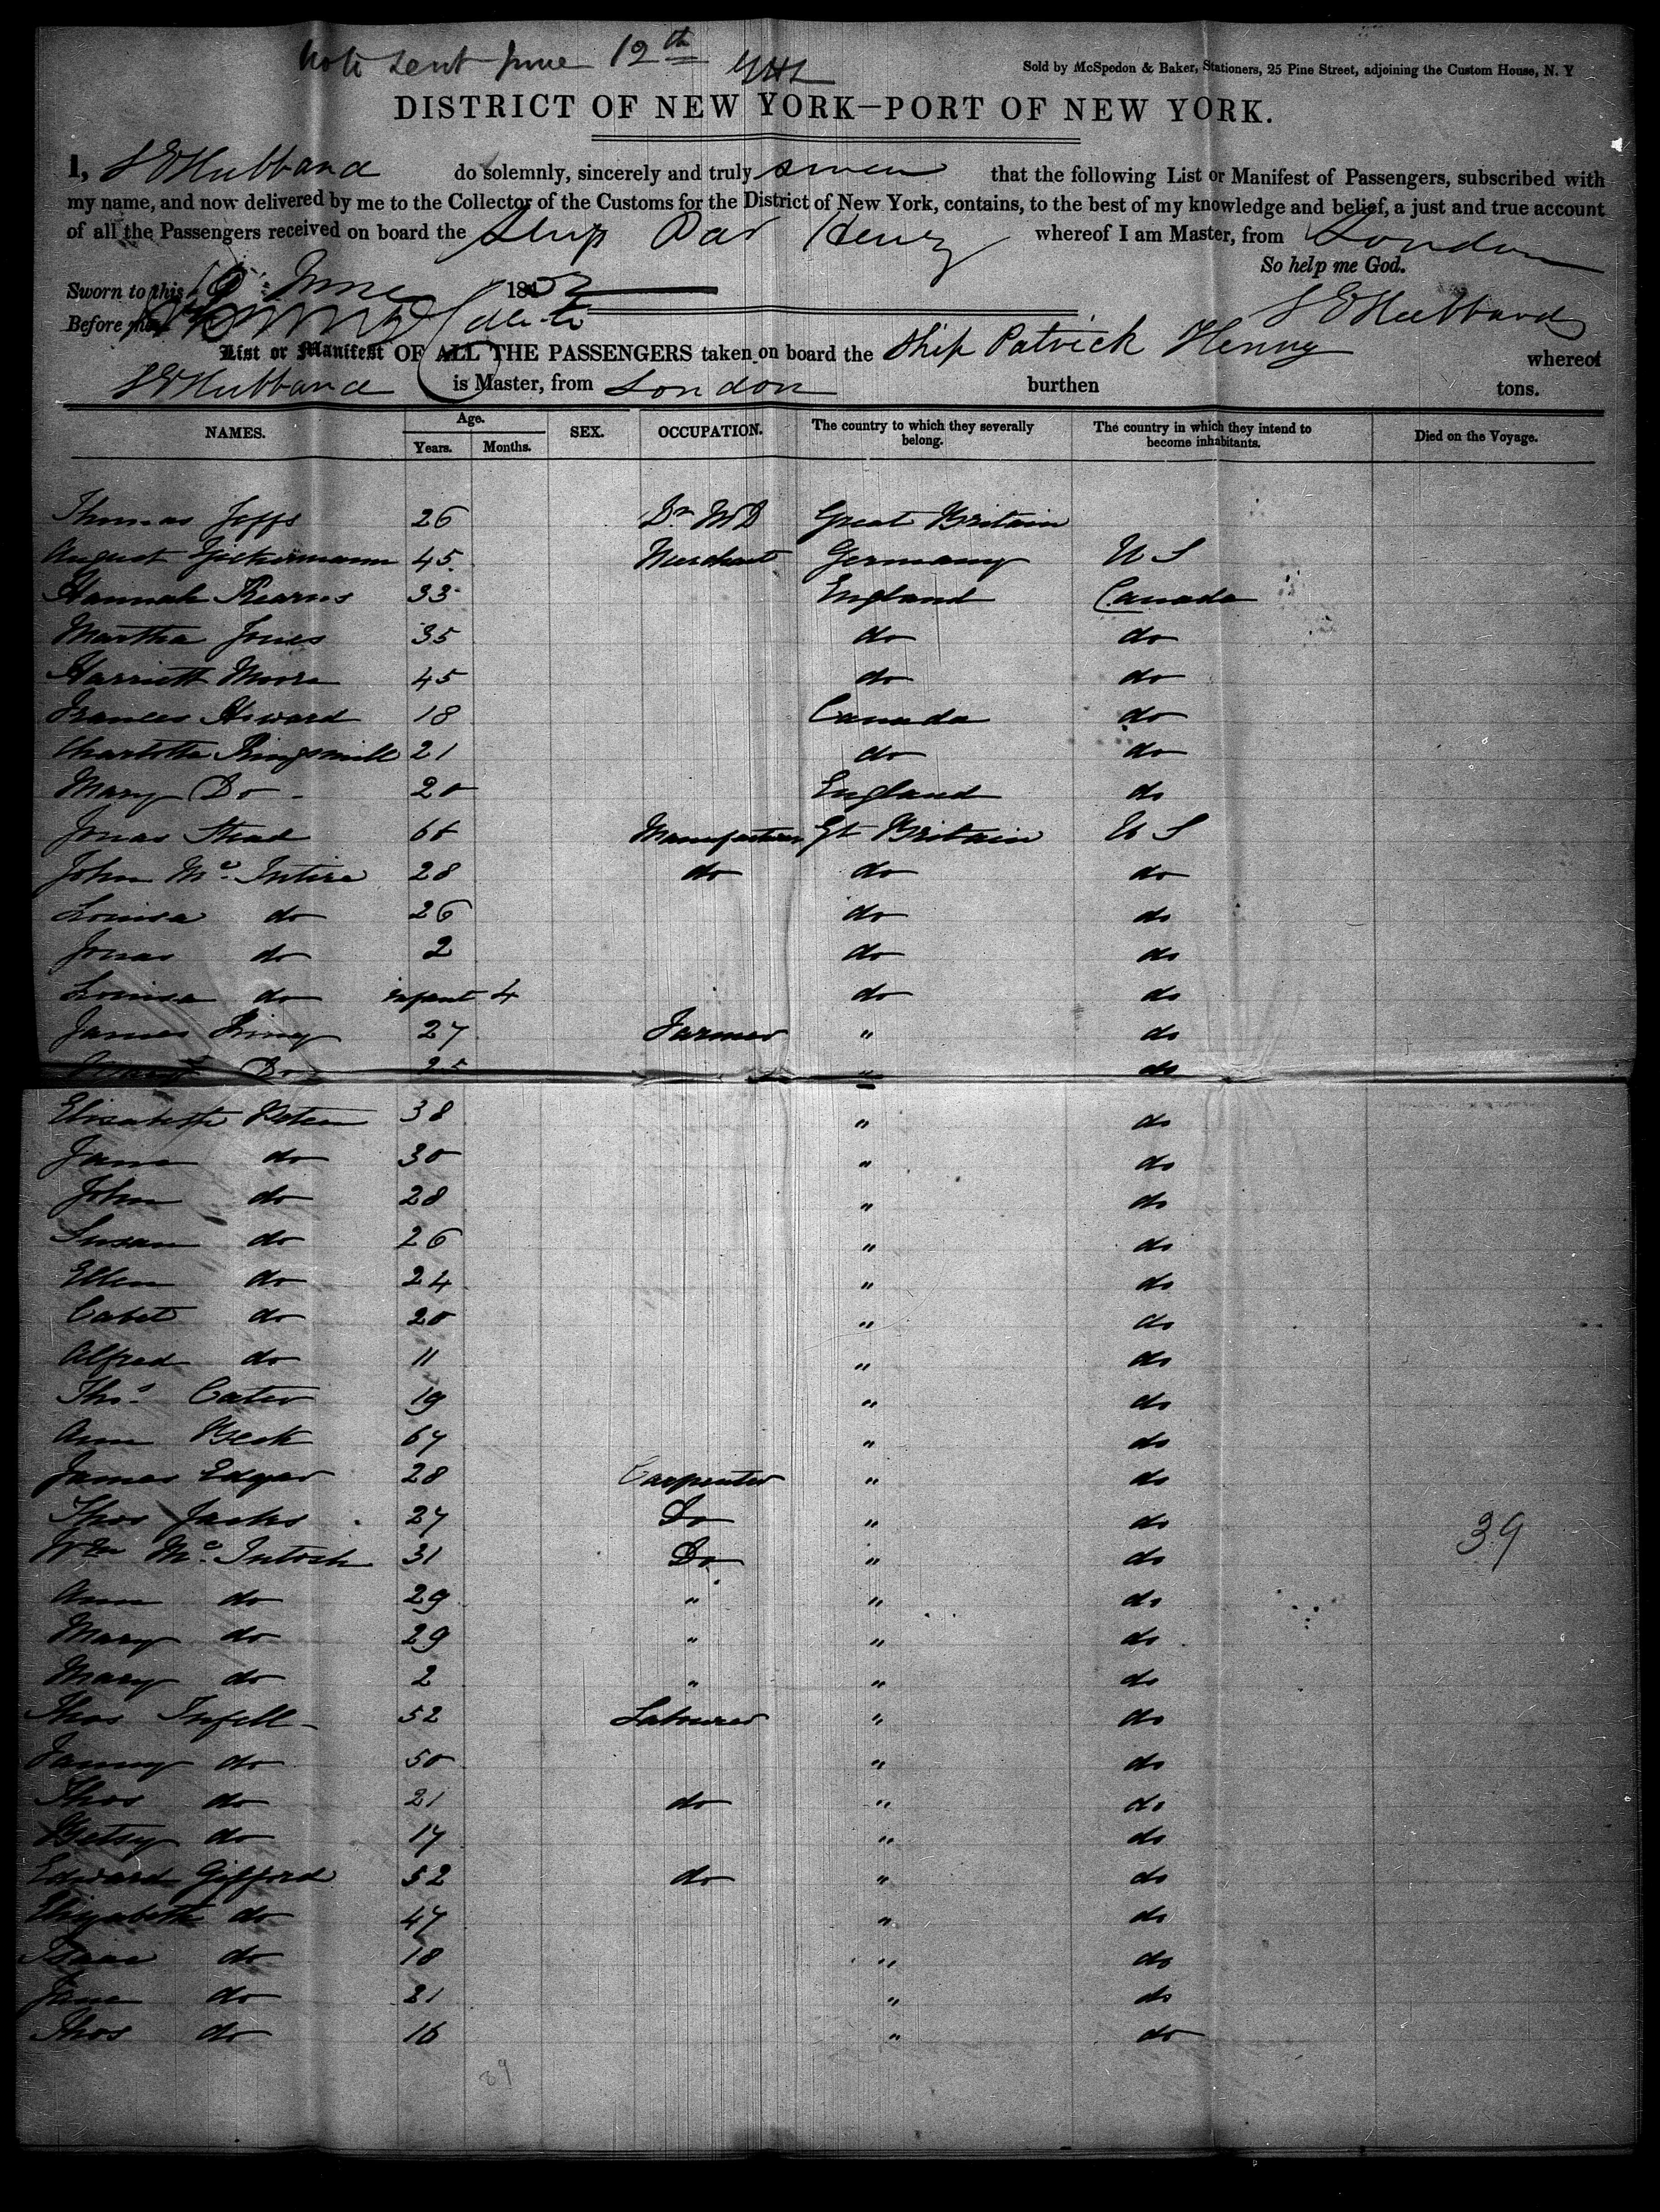 Note sent June 12th
Sold by McSpedon & Baker, Stationers, 25 Pine Street, adjoining the Custom House, N. Y
DISTRICT OF NEW YORK—PORT OF NEW YORK.
I, S E Hubbard do solemnly, sincerely and truly swear that the following List or Manifest of Passengers, subscribed with
my name, and now delivered by me to the Collector of the Customs for the District of New York, contains, to the best of my knowledge and belief, a just and true account
of all the Passengers received on board the Ship Pat Henry whereof I am Master, from London
So help me God.
Sworn to this June 1852
Before me S E Hubbard
List or Manifest OF ALL THE PASSENGERS taken on board the Ship Patrick Henry whereof
S E Hubbard is Master, from London burthen tons.
NAMES. Age. Years. Months. SEX. OCCUPATION. The country to which they severally belong. The country in which they intend to become inhabitants. Died on the Voyage.
Thomas Joffs 26 Dr MD Great Britain
August 45 Merchant Germany U S
Hannah 33 England Canada
Martha Jones 35 do do
Harriett Moore 45 do do
Frances Howard 18 Canada do
Charlotte Kingsmill 21 do do
Mary Do 20 England do
Jonas Stead Manufacturer Gt Britain U S
John Mc Intire 28 do do do
Louisa do 26 do do
Jonas do 2 do do
Louisa do infant 4 do do
James King 27 Farmer " do
Mary Do 25 " do
Elisabeth 38 " do
Jane do 30 " do
John do 28 " do
Susan do 26 " do
Ellen do 24 " do
do 20 " do
Alfred do 11 " do
Thos Cater 19 " do
Ann Beck 67 " do
James Edgar 28 Carpenter " do
Thos Jacks 27 Do " do
Wm Mc Intosh 31 Do " do 39
Ann do 29 " " do
Mary do 29 " " do
Mary do 2 " " do
Thos 52 Labourer " do
Fanny do 50 " do
Thos do 21 do " do
Betsy do 17 " do
Edward Gifford 52 do " do
Elizabeth do 47 " do
Isaac do 18 " do
Jane do 21 " do
Thos do 16 " do
39